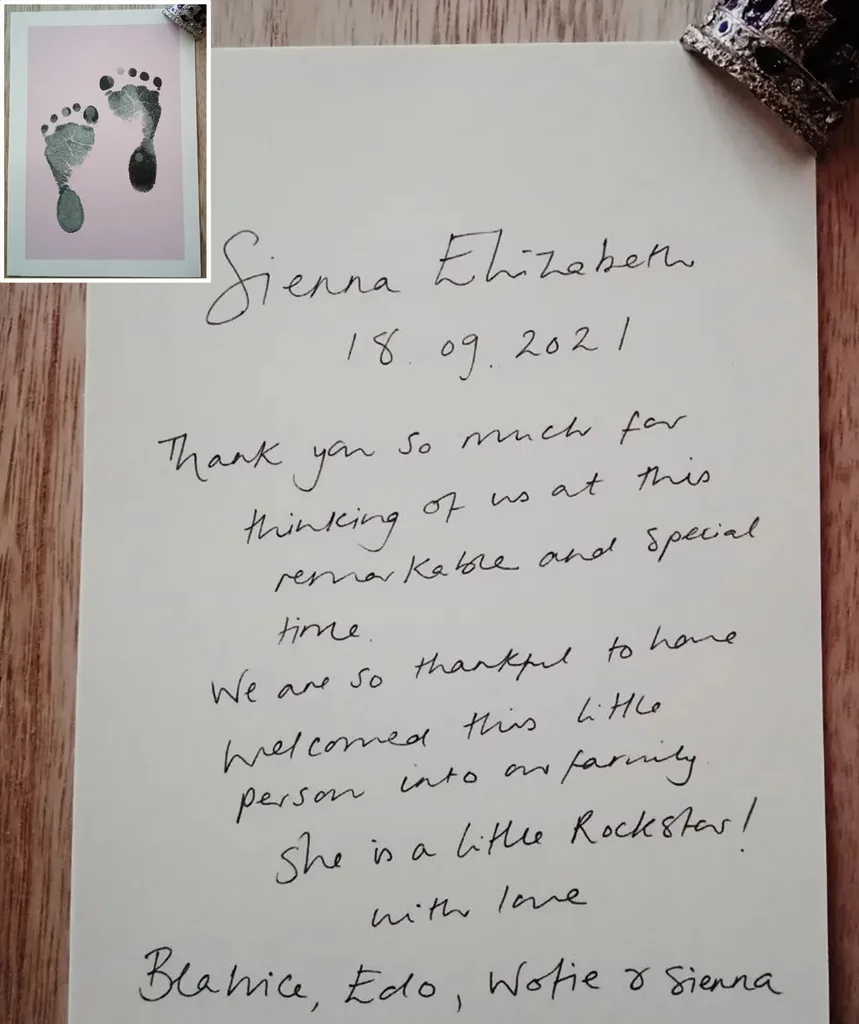 Sienna Elizabeth
18.09.2021
Thank you so much for
thinking of us at this
remarkable and special
time.
We are so thankful to have
welcomed this little
person into our family
She is a little Rockstar!
with love
Beatrice, Edo, Wolfie & Sienna